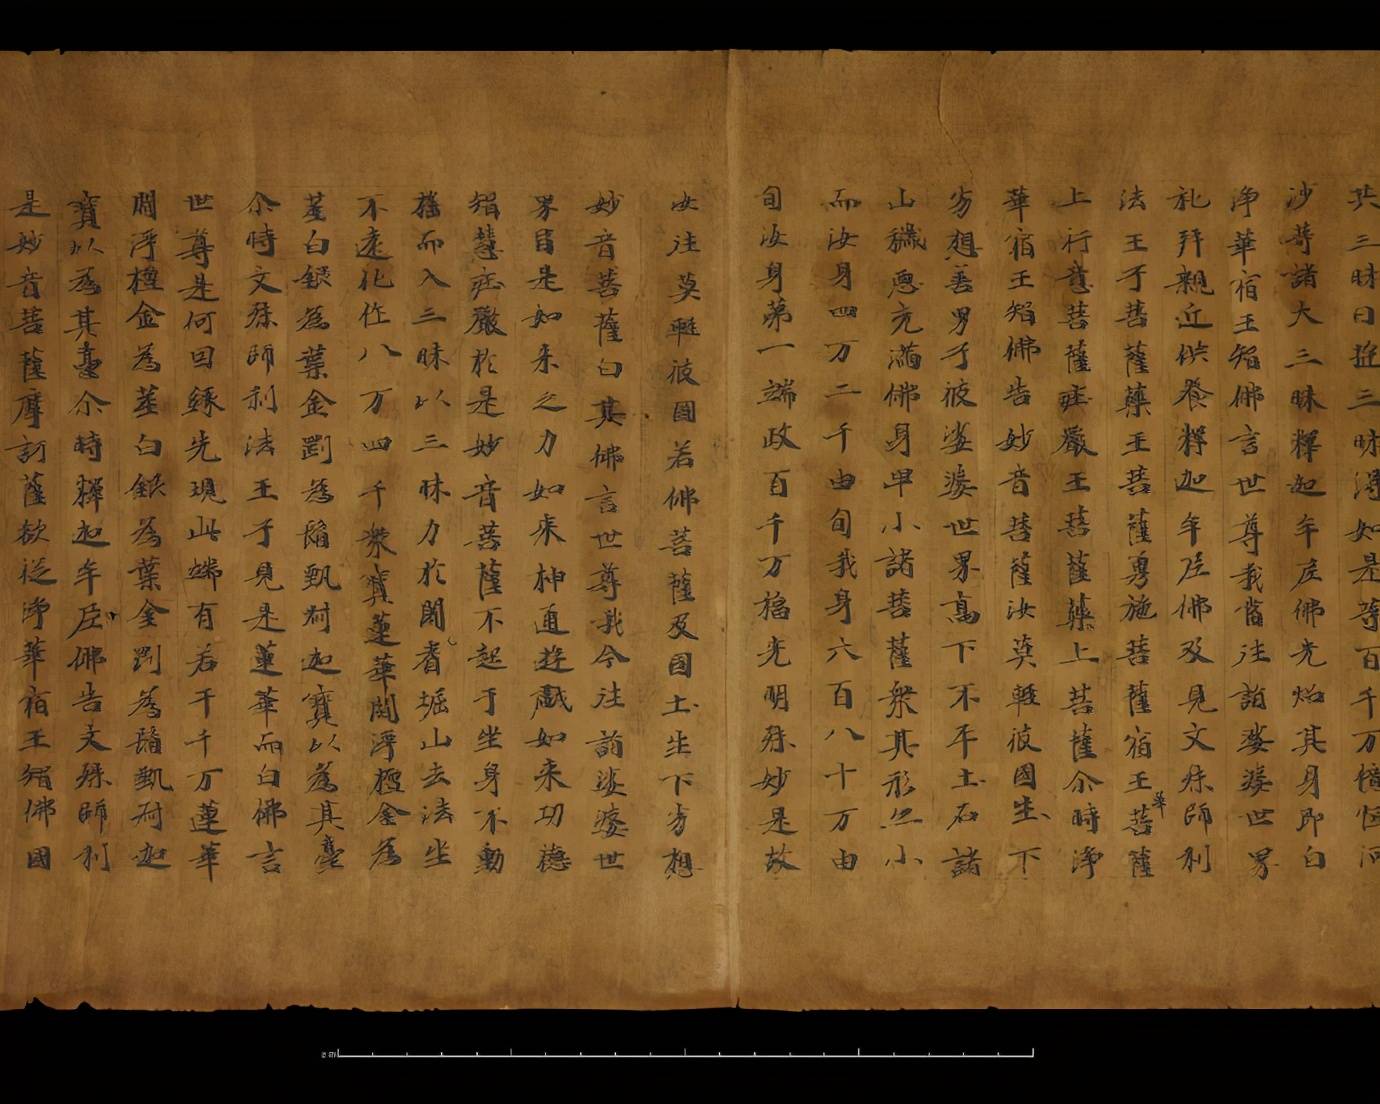 共三昧日旋三昧得如是等百千万億恒河
沙等諸大三昧釋迦牟尼佛光炤其身即白
淨華宿王智佛言世尊我當往詣娑婆世界
礼拜親近供養釋迦牟尼佛及見文殊師利
法王子菩薩藥王菩薩勇施菩薩宿王華菩薩
上行意菩薩莊嚴王菩薩藥上菩薩尒時淨
華宿王智佛告妙音菩薩汝莫輕彼國生下
劣想善男子彼娑婆世界高下不平土石諸
山穢惡充滿佛身卑小諸菩薩衆其形亦小
而汝身四万二千由旬我身六百八十万由
旬汝身第一端政百千万福光明殊妙是故
汝往莫輕彼國若佛菩薩及國土生下劣想
妙音菩薩白其佛言世尊我今往詣娑婆世
界皆是如来之力如来神通遊戲如来功德
智慧莊嚴於是妙音菩薩不起于坐身不動
搖而入三昧以三昧力於闍耆堀山去法坐
不遠化作八万四千衆寶蓮華閻浮檀金為
莖白銀為葉金剛為鬚甄叔迦寶以為其臺
尒時文殊師利法王子見是蓮華而白佛言
世尊是何因緣先現此瑞有若干千万蓮華
閻浮檀金為莖白銀為葉金剛為鬚甄叔迦
寶以為其臺尒時釋迦牟尼佛告文殊師利
是妙音菩薩摩訶薩欲從淨華宿王智佛國